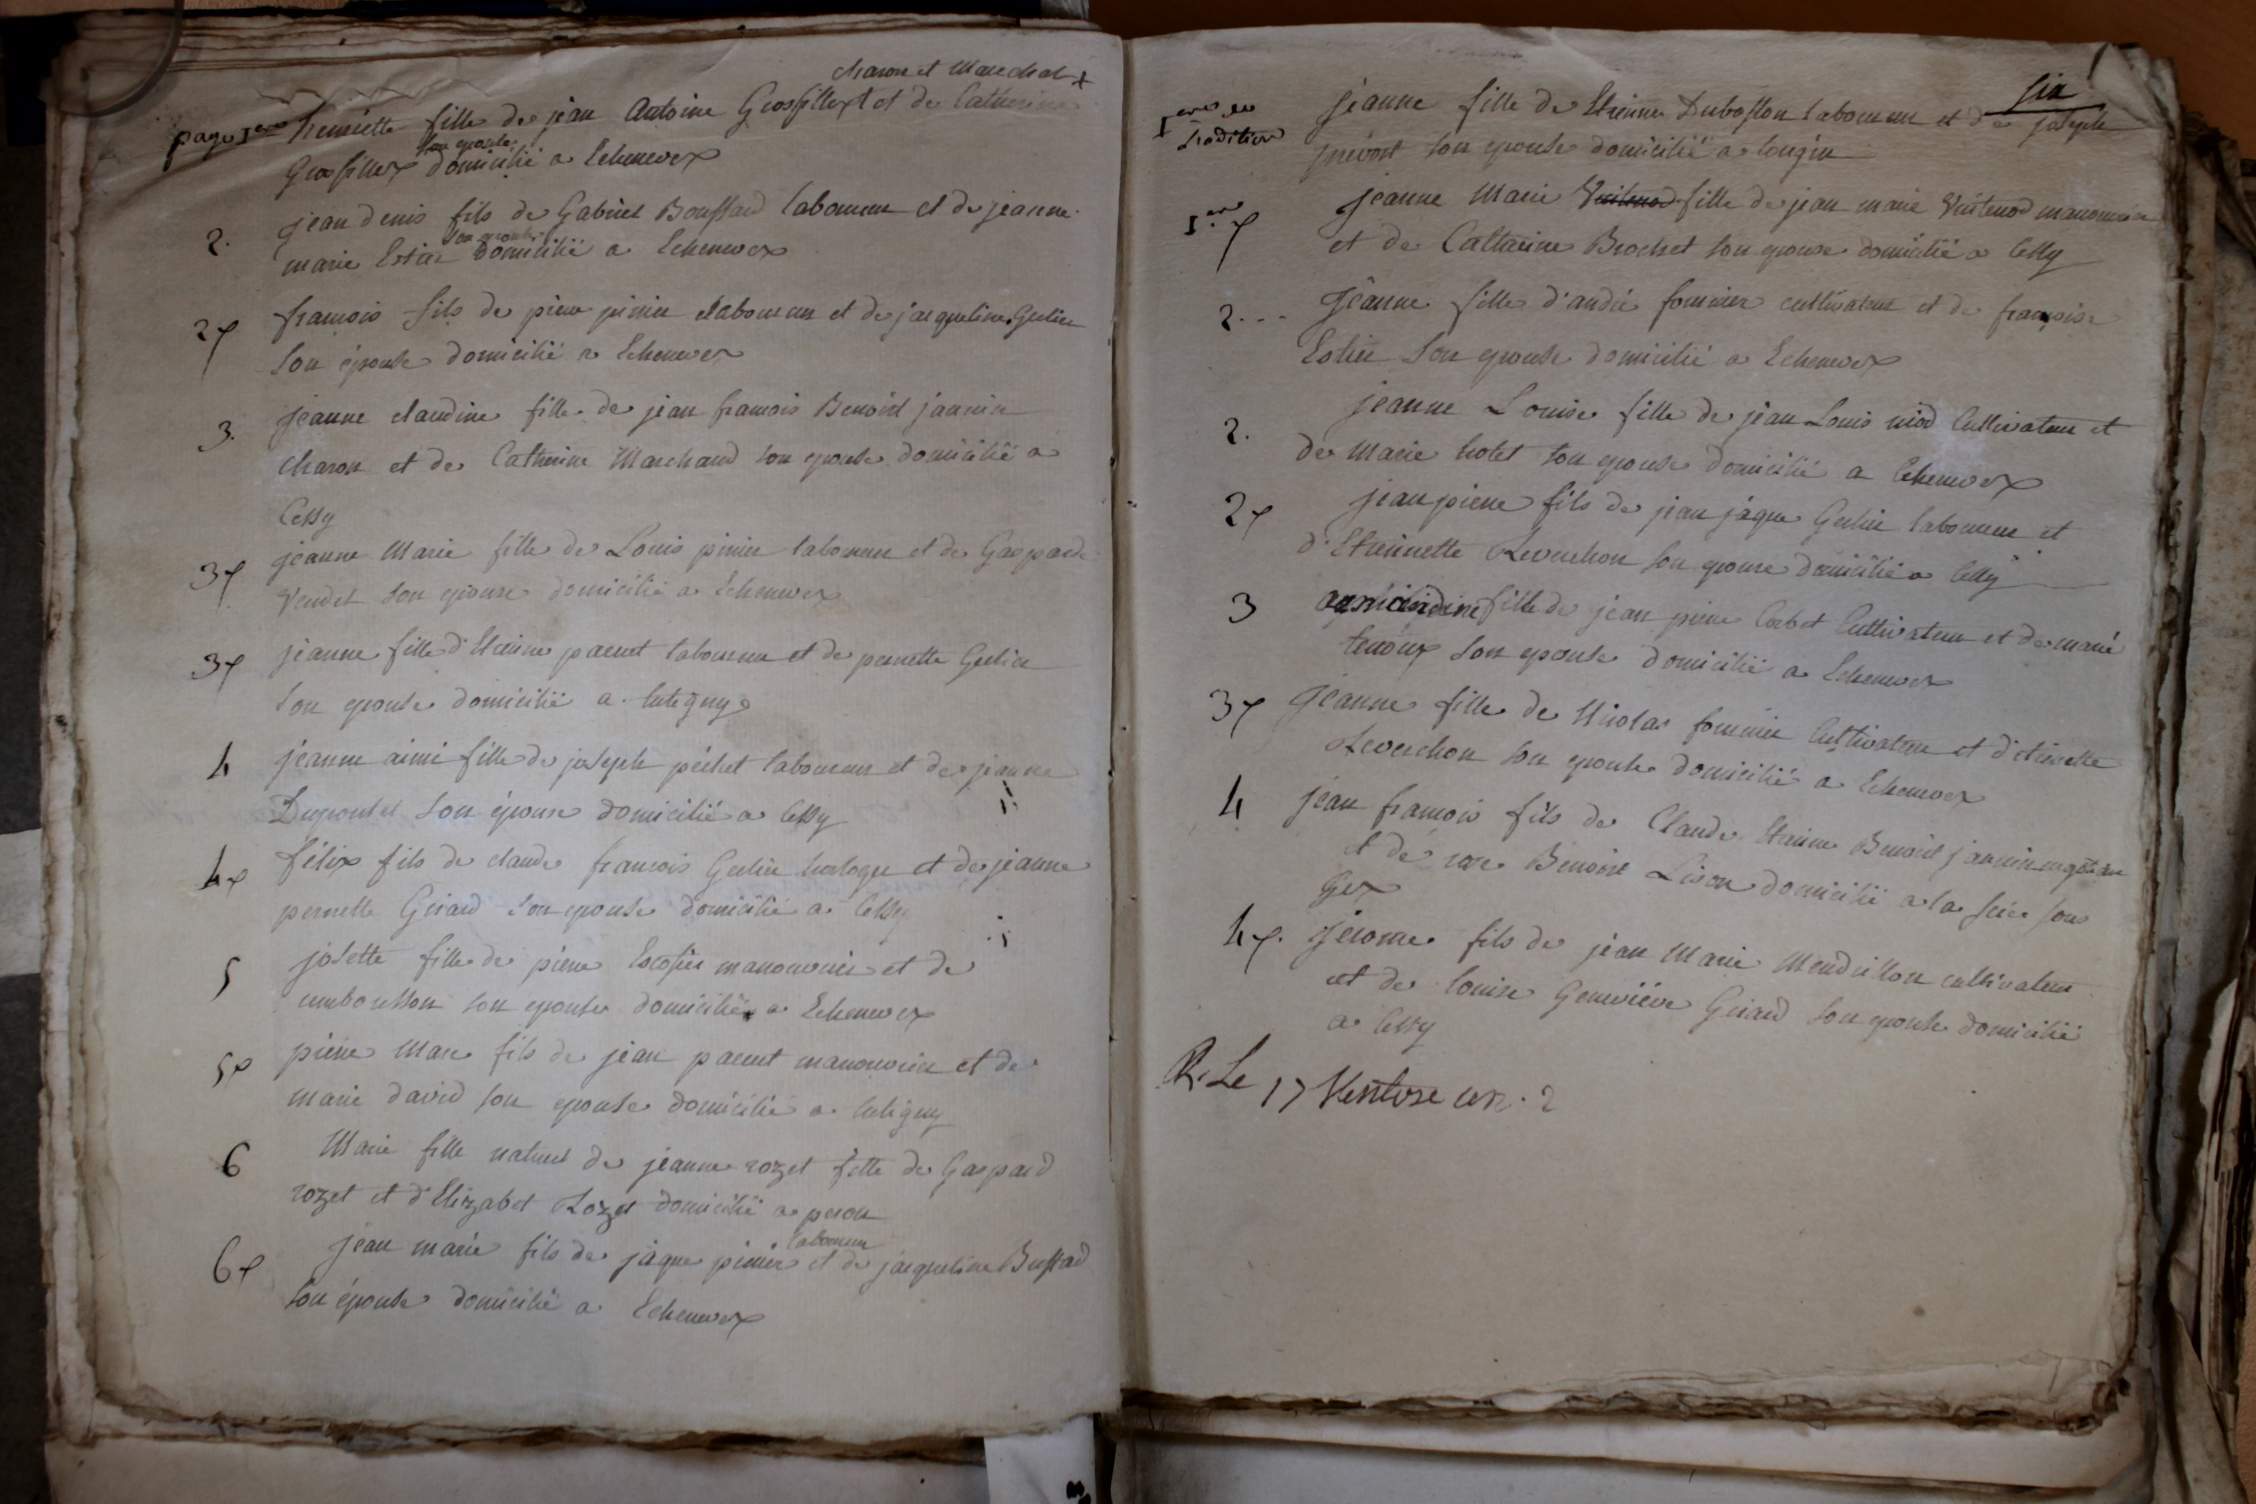 charon et Marechal +
page 1ere henriette fille de jean Antoine Grosfillex + et de Catherine
son epouse
Grosfillex domicilié a Echenevex
2. jean denis fils de Gabriel Boussard laboureur et de jeanne
son epouse
marie Estier domicilié a Echenevex
2 v francois fils de pierre pinier laboureur et de jacqueline Gerlier
son épouse domicilié a Echenevex
3. jeanne claudine fille de jean francois Benoist jannin
charon et de Catherine Marchand son epouse domicilié a
Cessy
3 v jeanne Marie fille de Louis pinier laboureur et de Gasparde
Vendet son epouse domicilié a Echenevex
3 v jeanne fille d'Etienne parent laboureur et de pernette Gerlier
son epouse domicilié a
4 jeanne aimé fille de joseph péchet laboureur et de jeanne
Dupontet son épouse domicilié a Cessy
4 v félix fils de claude francois Gerlier horloger et de jeanne
pernette Girard son epouse domicilié a Cessy
5 josette fille de pierre Escofier manouvrier et de
son epouse domicilié a Echenevex
5 v pierre Marc fils de jean parent manouvrier et de
marie david son epouse domicilié a
6 Marie fille naturel de jeanne rozet fille de Gaspard
rozet et d'Elizabet Rozet domicilié a peron
laboureur
6 v jean marie fils de jaque pinier et de jacqueline Bussard
son épouse domicilié a Echenevex
six
1ere en
tradition
jeanne fille de Etienne Duboston laboureur et de joseph
prevost son epouse domicilié a tougin
1ere v jeanne Marie Vuitenod fille de jean marie Vuitenod manouvrier
et de Catharine Brochet son epouse domicilié a Cessy
2 jeanne fille d'andré fournier cultivateur et de francoise
Estier son epouse domicilié a Echenevex
2. jeanne Louise fille de jean Louis niod Cultivateur et
de Marie hotet son epouse domicilié a Echenevex
2 v jean pierre fils de jean jaque Gerlier laboureur et
d'Etiennette Reverchon son epouse domicilié a Cessy
3 fille de jean pierre Cabet Cultivateur et de marie
son epouse domicilié a Echenevex
3 v jeanne fille de Nicolas fournier Cultivateur et d'etienette
Reverchon son epouse domicilié a Echenevex
4 jean francois fils de Claude Etienne Benoist jannin
et de rose Benoist Lison domicilié a la scie sous
Gex
4 v. jerome fils de jean Marie Mendrillon cultivateur
et de louise Geneviève Girard son epouse domicilié
a Cessy
R. Le 17 Ventose an. 2